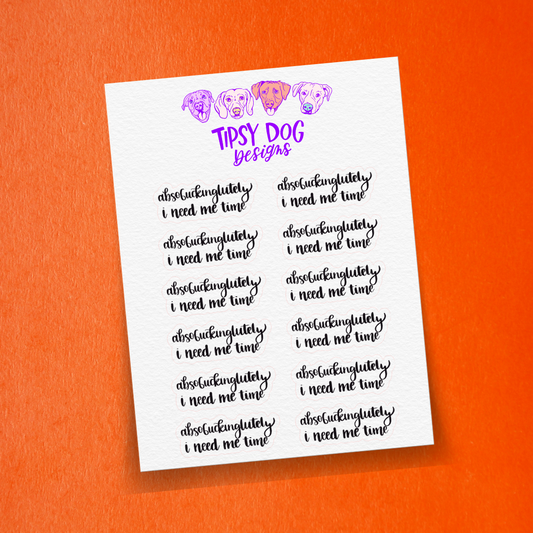 TIPSY DOG
Designs
absofuckinglutely
i need me time
absofuckinglutely
i need me time
absofuckinglutely
i need me time
absofuckinglutely
i need me time
absofuckinglutely
i need me time
absofuckinglutely
i need me time
absofuckinglutely
i need me time
absofuckinglutely
i need me time
absofuckinglutely
i need me time
absofuckinglutely
i need me time
absofuckinglutely
i need me time
absofuckinglutely
i need me time